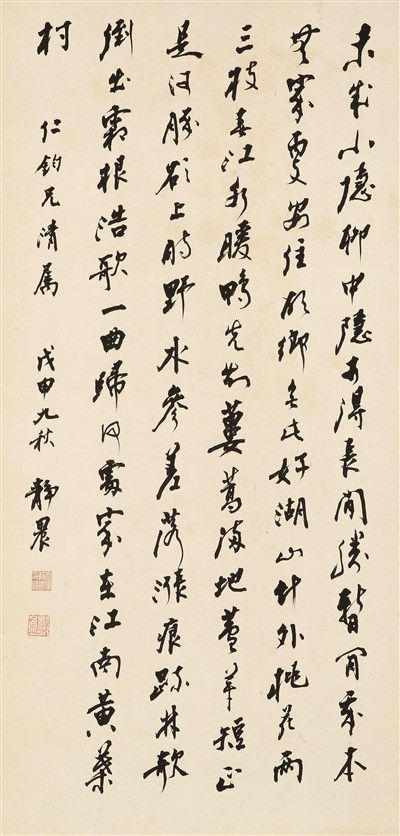 未成小隱聊中隱可得長閒勝暫閒我本
無家更安往故鄉無此好湖山竹外桃花兩
三枝春江水暖鴨先知蔞蒿滿地蘆芽短正
是河豚欲上時野水參差落漲痕疏林欹
倒出霜根浩歌一曲歸何處家在江南黃葉
村 仁鈞兄清屬 戊申九秋 靜農